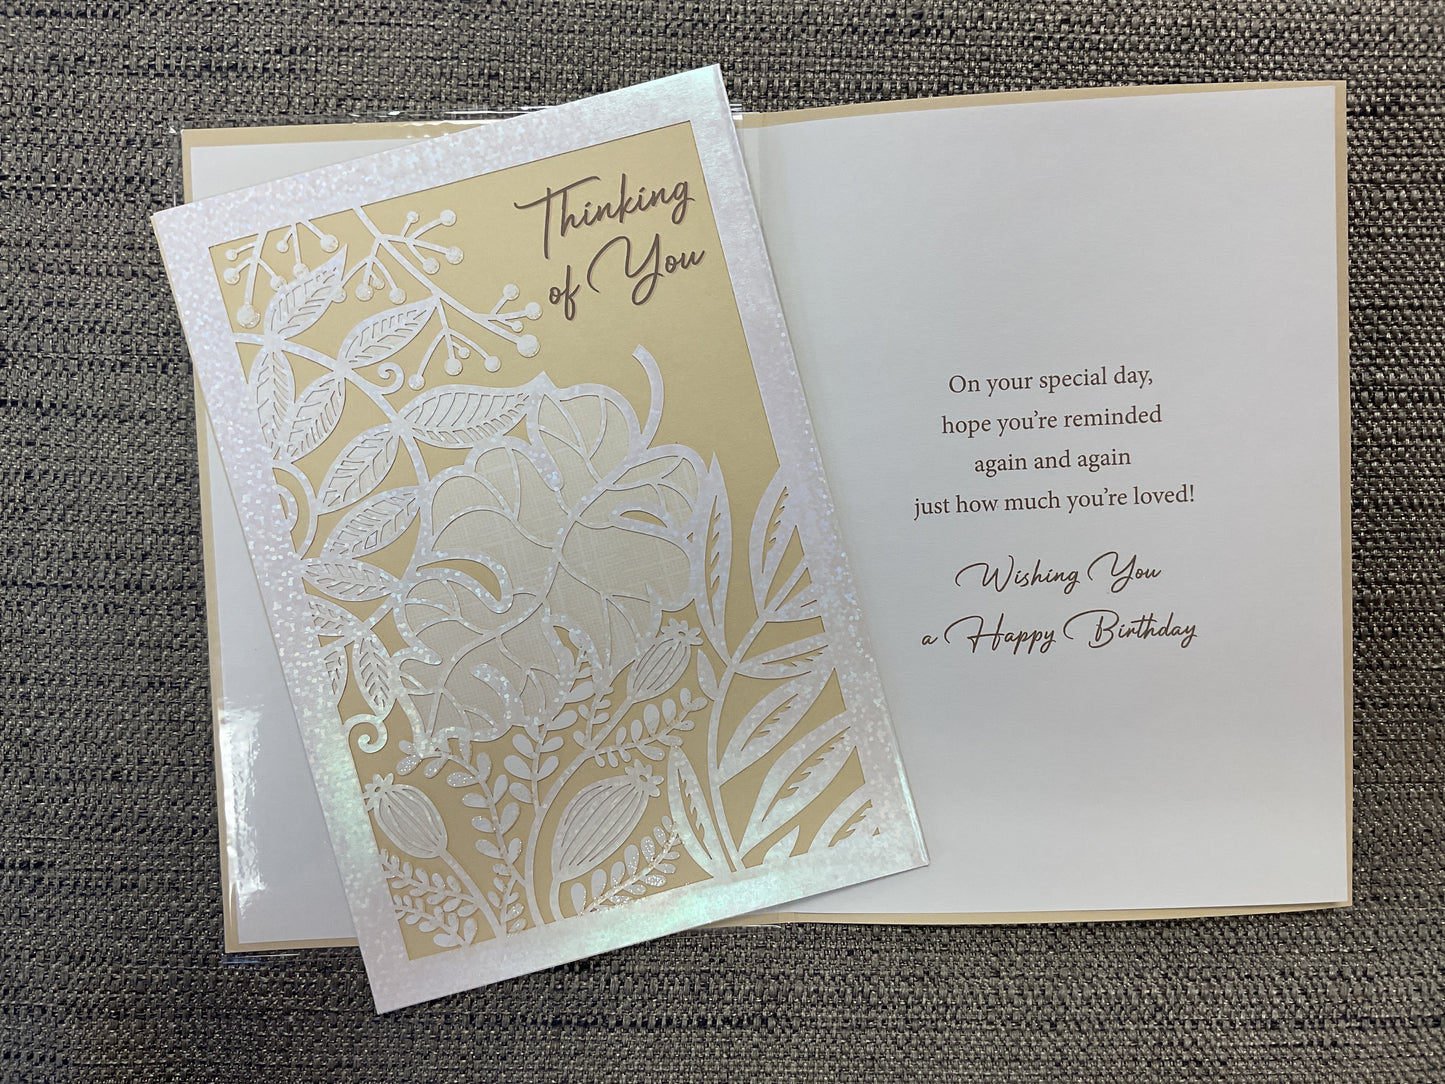 Thinking
of You
On your special day,
hope you're reminded
again and again
just how much you're loved!
Wishing You
a Happy Birthday